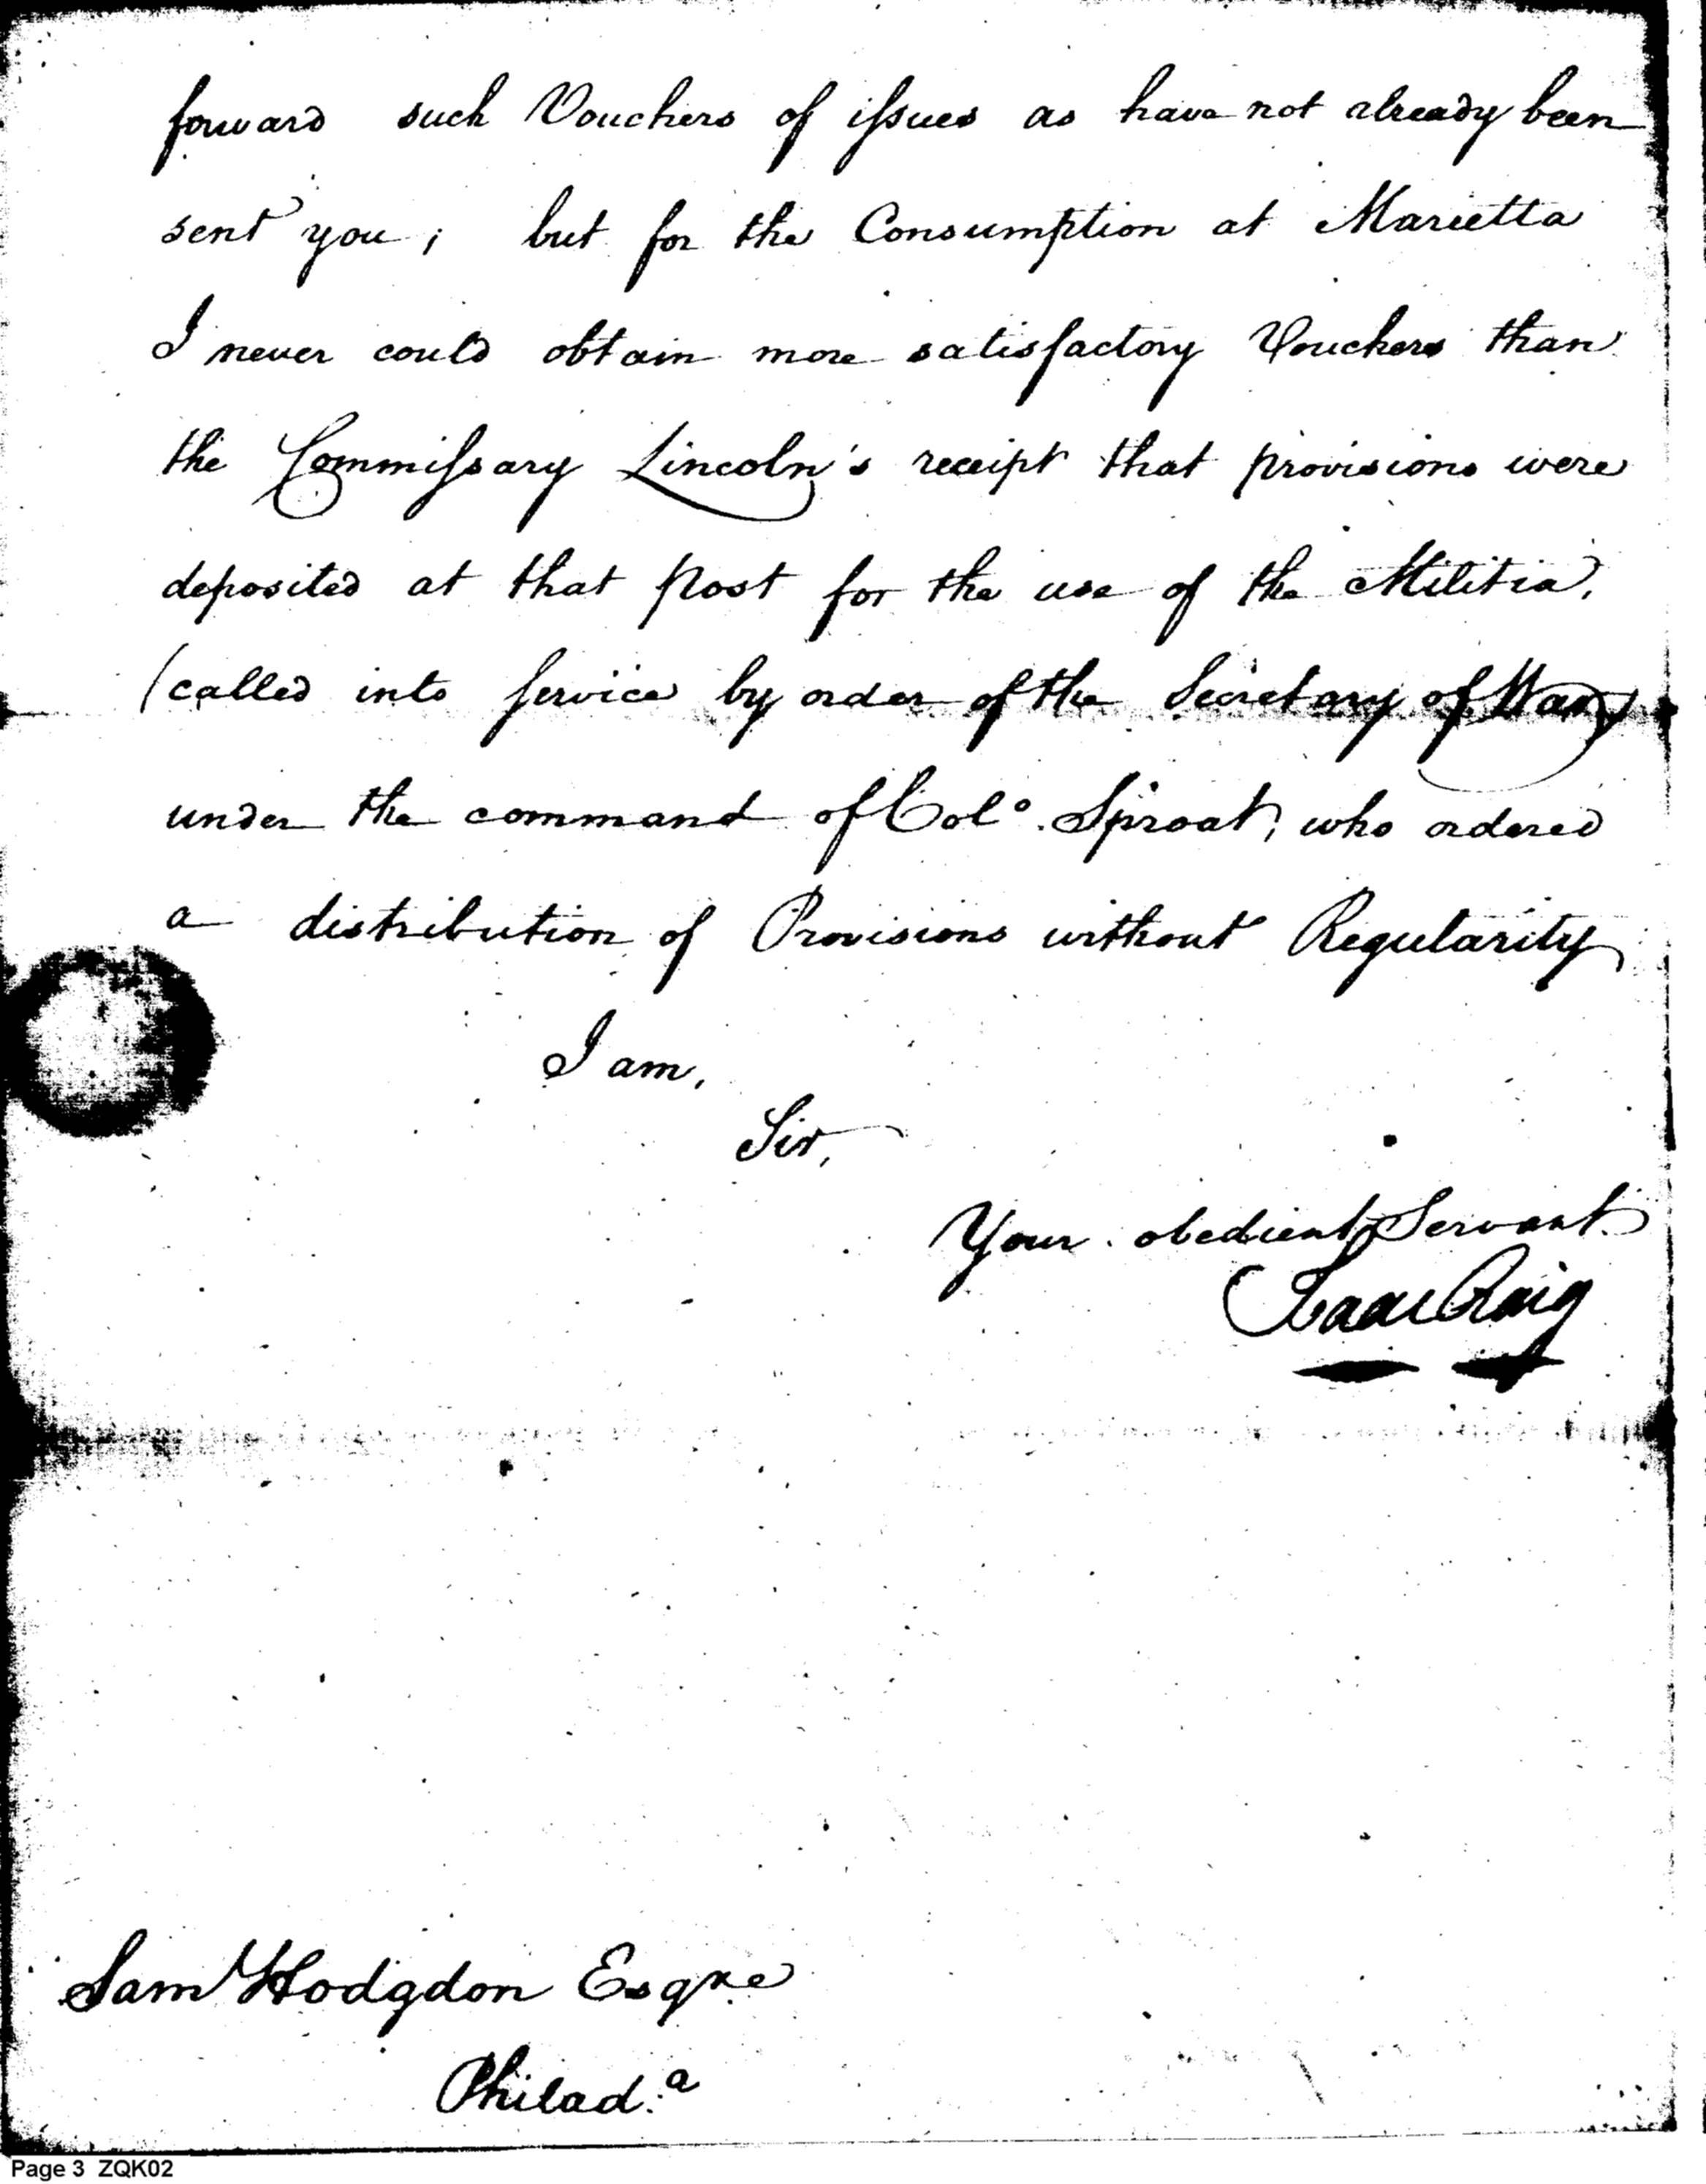 forward such Vouchers of iſsues as have not already been
sent you; but for the Consumption at Marietta
I never could obtain more satisfactory Vouchers than
the Commiſsary Lincoln's receipt that provisions were
deposited at that post for the use of the Militia,
(called into ſervice by order of the Secretary of War)
under the command of Colº. Sproat, who ordered
a distribution of Provisions without Regularity
I am,
Sir,
Your obedient Servant
Isaac Craig
Sam Hodgdon Esqre
Philad:ª
Page 3 ZQK02